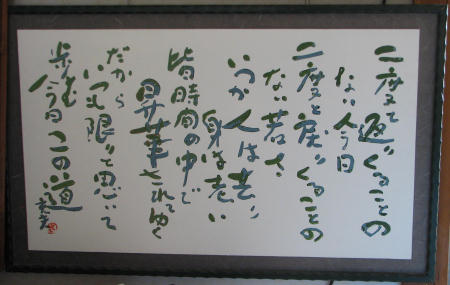 二度と返ることの
ない今日
二度と戻ることの
ない若さ
いつか人は老い
身は老い
皆時間の中で
昇華されてゆく
だから
いつも限りと思いて
歩む
今日この道